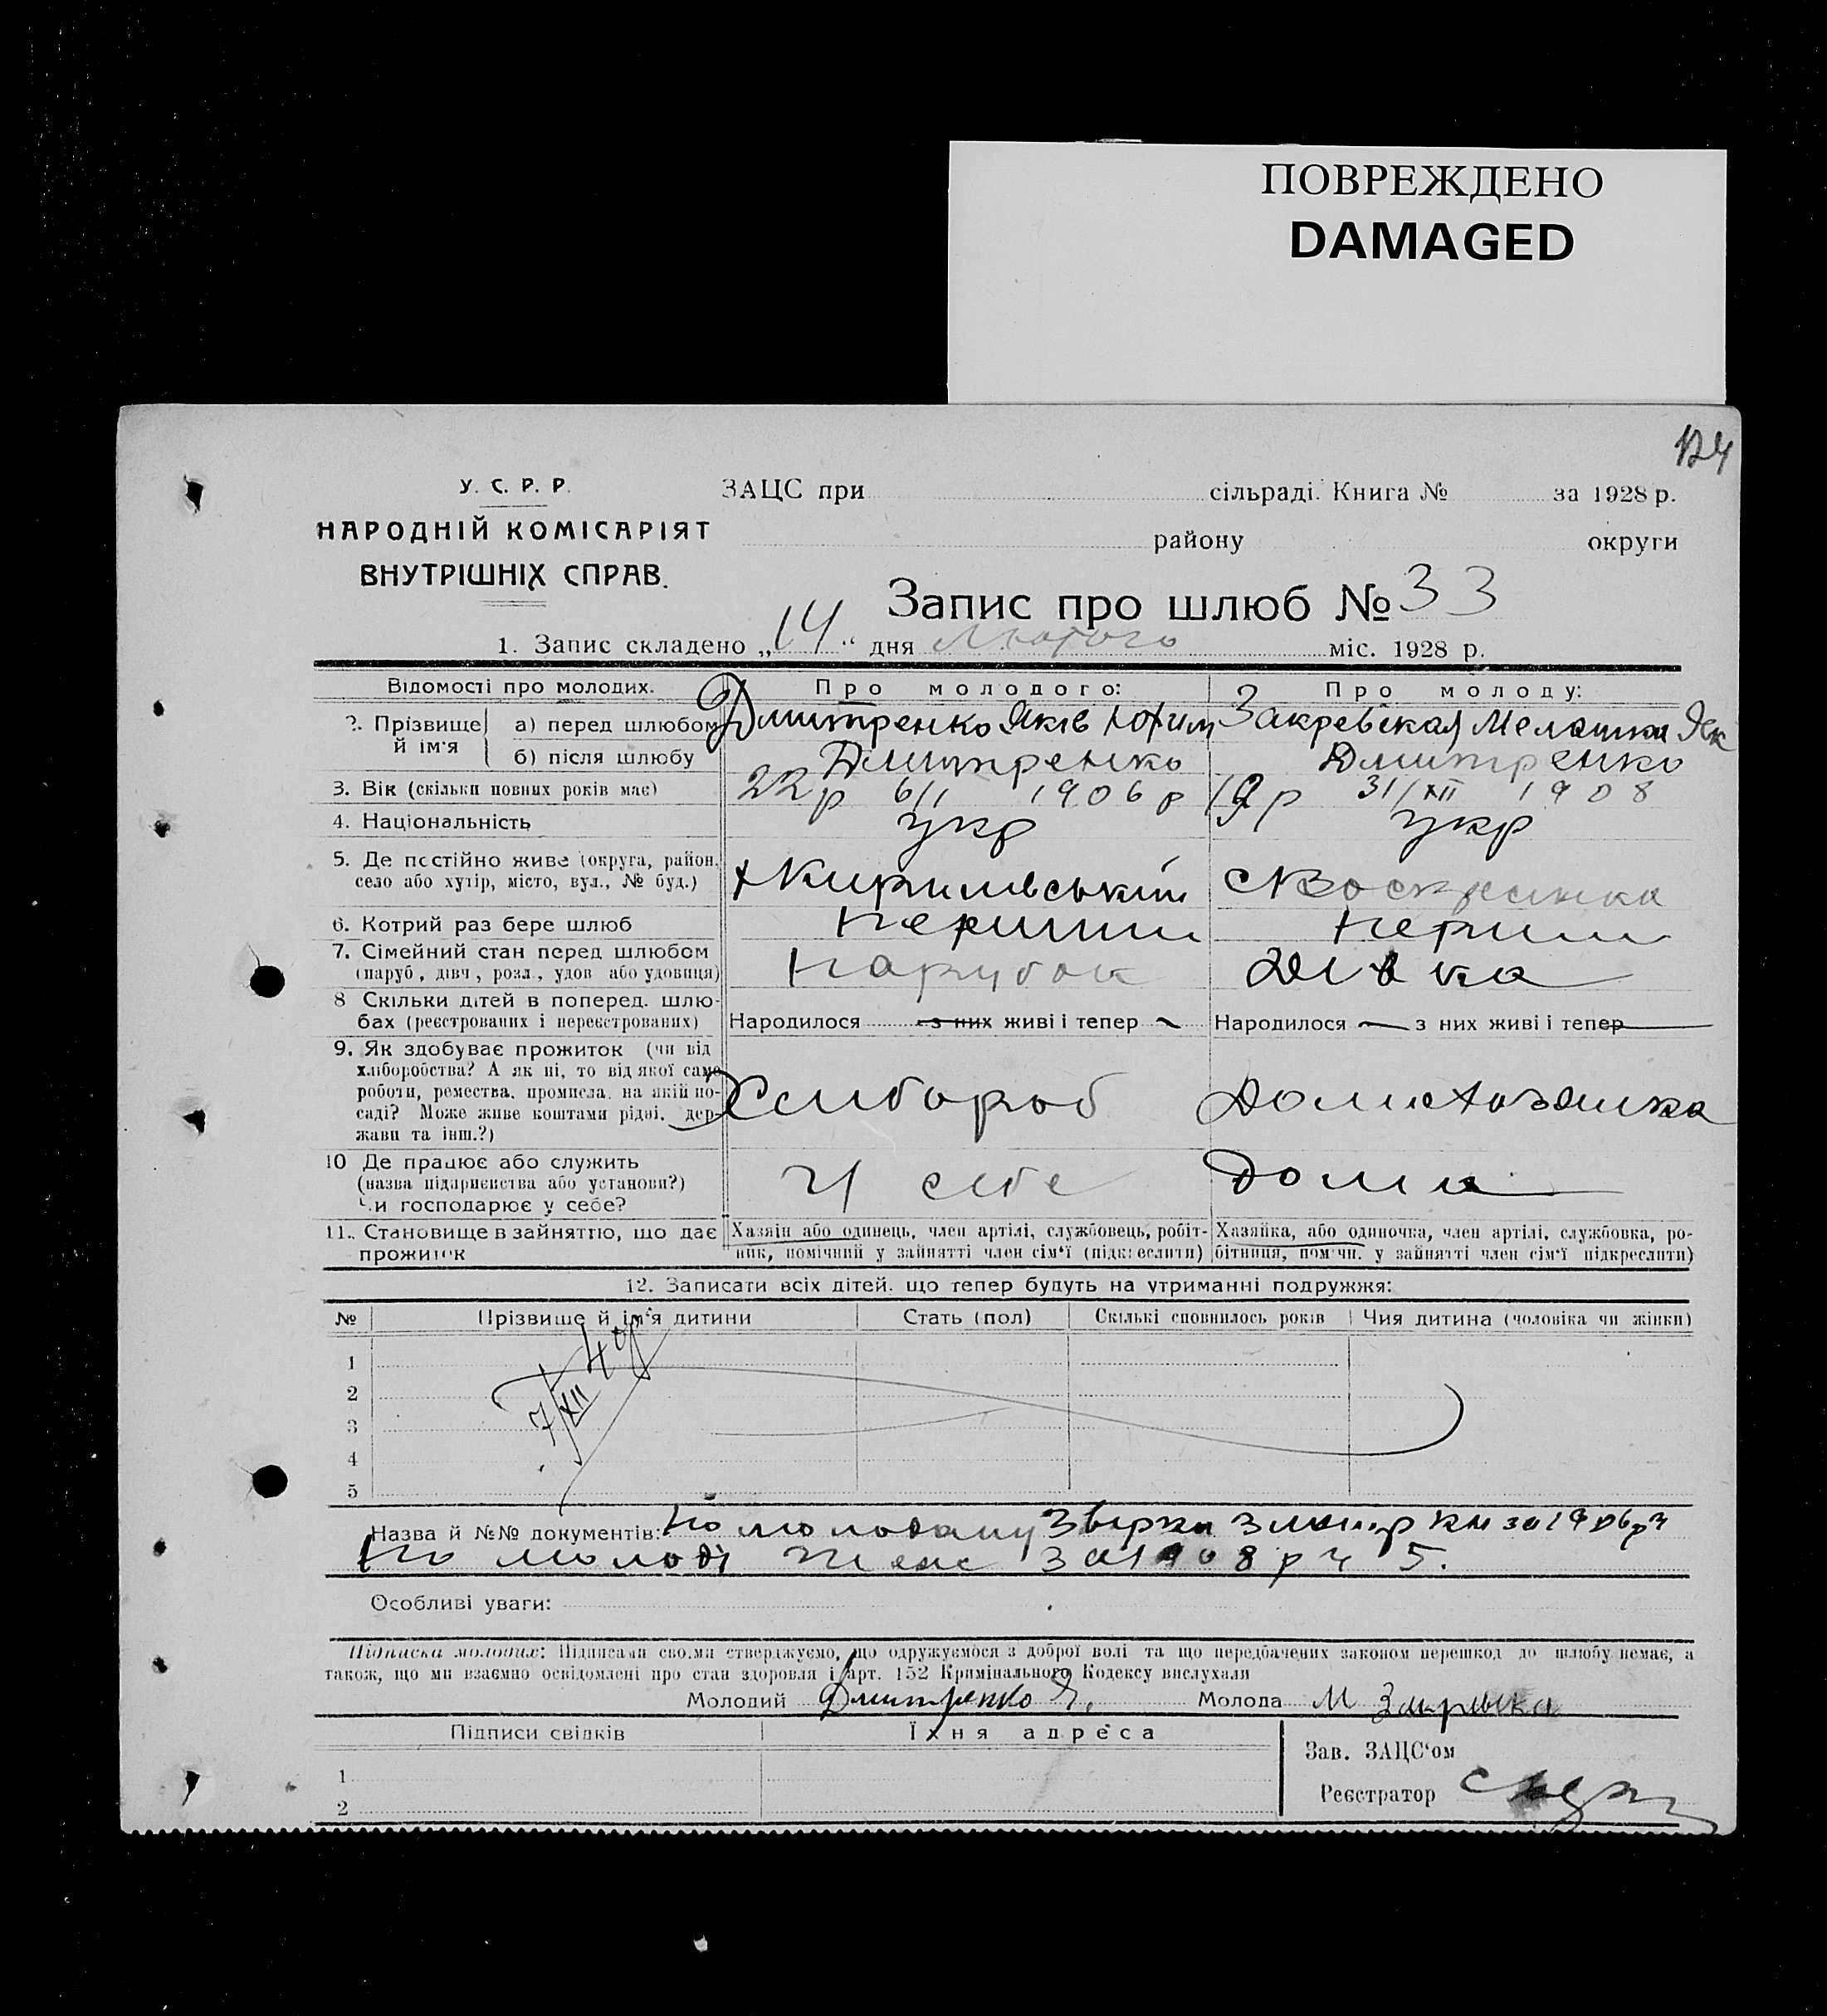 ПОВРЕЖДЕНО
DAMAGED
124
У. С. Р. Р.
НАРОДНІЙ КОМІСАРІЯТ
ВНУТРІШНІХ СПРАВ.
ЗАЦС при сільраді. Книга № за 1928 р.
району округи
Запис про шлюб № 33
1. Запис складено „14“ дня Лютого міс. 1928 р.
Відомості про молодих. Про молодого: Про молоду:
2. Прізвище й ім'я а) перед шлюбом Дмитренко Яків Юхим Закревская Мелашка Як
б) після шлюбу Дмитренко Дмитренко
3. Вік (скільки повних років має) 22 р 6/I 1906 р 19 р 31/XII 1908
4. Національність укр укр
5. Де постійно живе (округа, район, село або хутір, місто, вул., № буд.) х Кирилівський с Воскресенка
6. Котрий раз бере шлюб Перший Перший
7. Сімейний стан перед шлюбом (паруб., дівч., розл., удов або удовиця) Парубок Дівка
8 Скільки дітей в поперед. шлюбах (реєстрованих і нереєстрованих) Народилося з них живі і тепер Народилося з них живі і тепер
9. Як здобуває прожиток (чи від
хліборобства? А як ні, то від якої саме
роботи, ремества, промисла, на якій по-
саді? Може живе коштами рідні, дер-
жави та інш.?) Хлібороб Домохазяика
10 Де працює або служить
(назва підприємства або установи?)
Чи господарює у себе? У себе Дома
11. Становище в зайняттю, що дає прожиток
Хазяїн або одинець, член артілі, службовець, робіт-
ник, помічний у зайнятті член сім'ї (підкреслити)
Хазяйка, або одиночка, член артілі, службовка, ро-
бітниця, помічн. у зайнятті член сім'ї підкреслити)
12. Записати всіх дітей, що тепер будуть на утриманні подружжя:
№ Прізвище й ім'я дитини Стать (пол) Скількі сповнилось років Чия дитина (чоловіка чи жінки)
1
2
3
4
5
7/XII 49
Назва й №№ документів: По молодому Звірка з метр кн за 1906 р ч
По молоді теж за 1908 р ч 5.
Особливі уваги:
Підписка молодих: Підписами своїми стверджуємо, що одружуємося з доброї волі та що передбачених законом перешкод до шлюбу немає, а
також, що ми взаємно освідомлені про стан здоровля і арт. 152 Кримінального Кодексу вислухали
Молодий Дмитренко Я. Молода М
Підписи свідків Їхня адреса
1
2
Зав. ЗАЦС'ом
Реєстратор